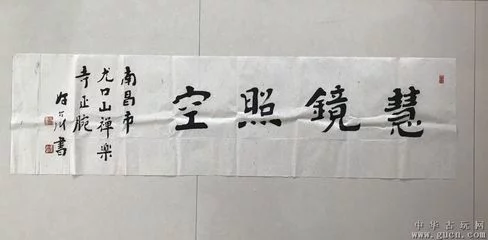 慧鏡照空
南昌市
尤口山禅樂
寺正腕
书
中华古玩网
www.gucn.com